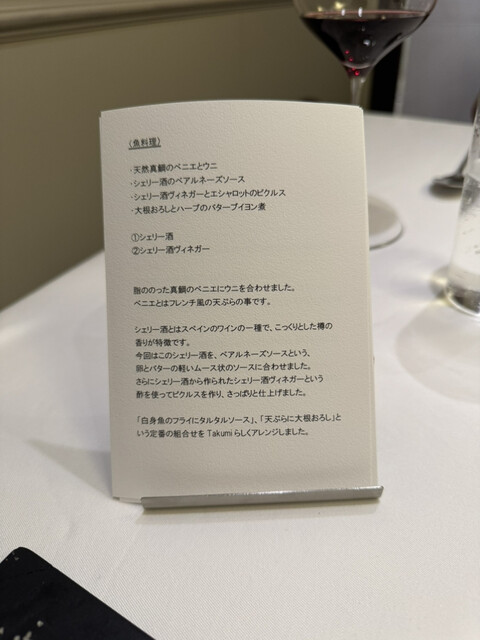 (魚料理)
・天然真鯛のベニエとウニ
・シェリー酒のベアルネーズソース
・シェリー酒ヴィネガーとエシャロットのピクルス
・大根おろしとハーブのバターブイヨン煮
①シェリー酒
②シェリー酒ヴィネガー
脂ののった真鯛のベニエにウニを合わせました。
ベニエとはフレンチ風の天ぷらの事です。
シェリー酒とはスペインのワインの一種で、こっくりとした樽の
香りが特徴です。
今回はこのシェリー酒を、ベアルネーズソースという、
卵とバターの軽いムース状のソースに合わせました。
さらにシェリー酒から作られたシェリー酒ヴィネガーという
酢を使ってピクルスを作り、さっぱりと仕上げました。
「白身魚のフライにタルタルソース」、「天ぷらに大根おろし」と
いう定番の組合せを Takumi らしくアレンジしました。